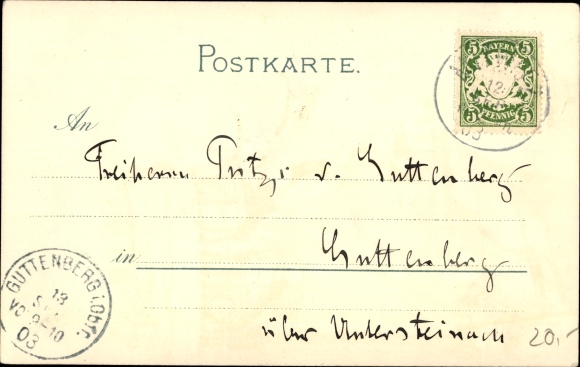 POSTKARTE.
5 BAYERN 5
5 PFENNIG 5
12
03
An
Freiherrn Fritz v. Guttenberg
in Guttenberg
über Untersteinach
20,-
GUTTENBERG i. Obfr.
13
VO 9-10
03